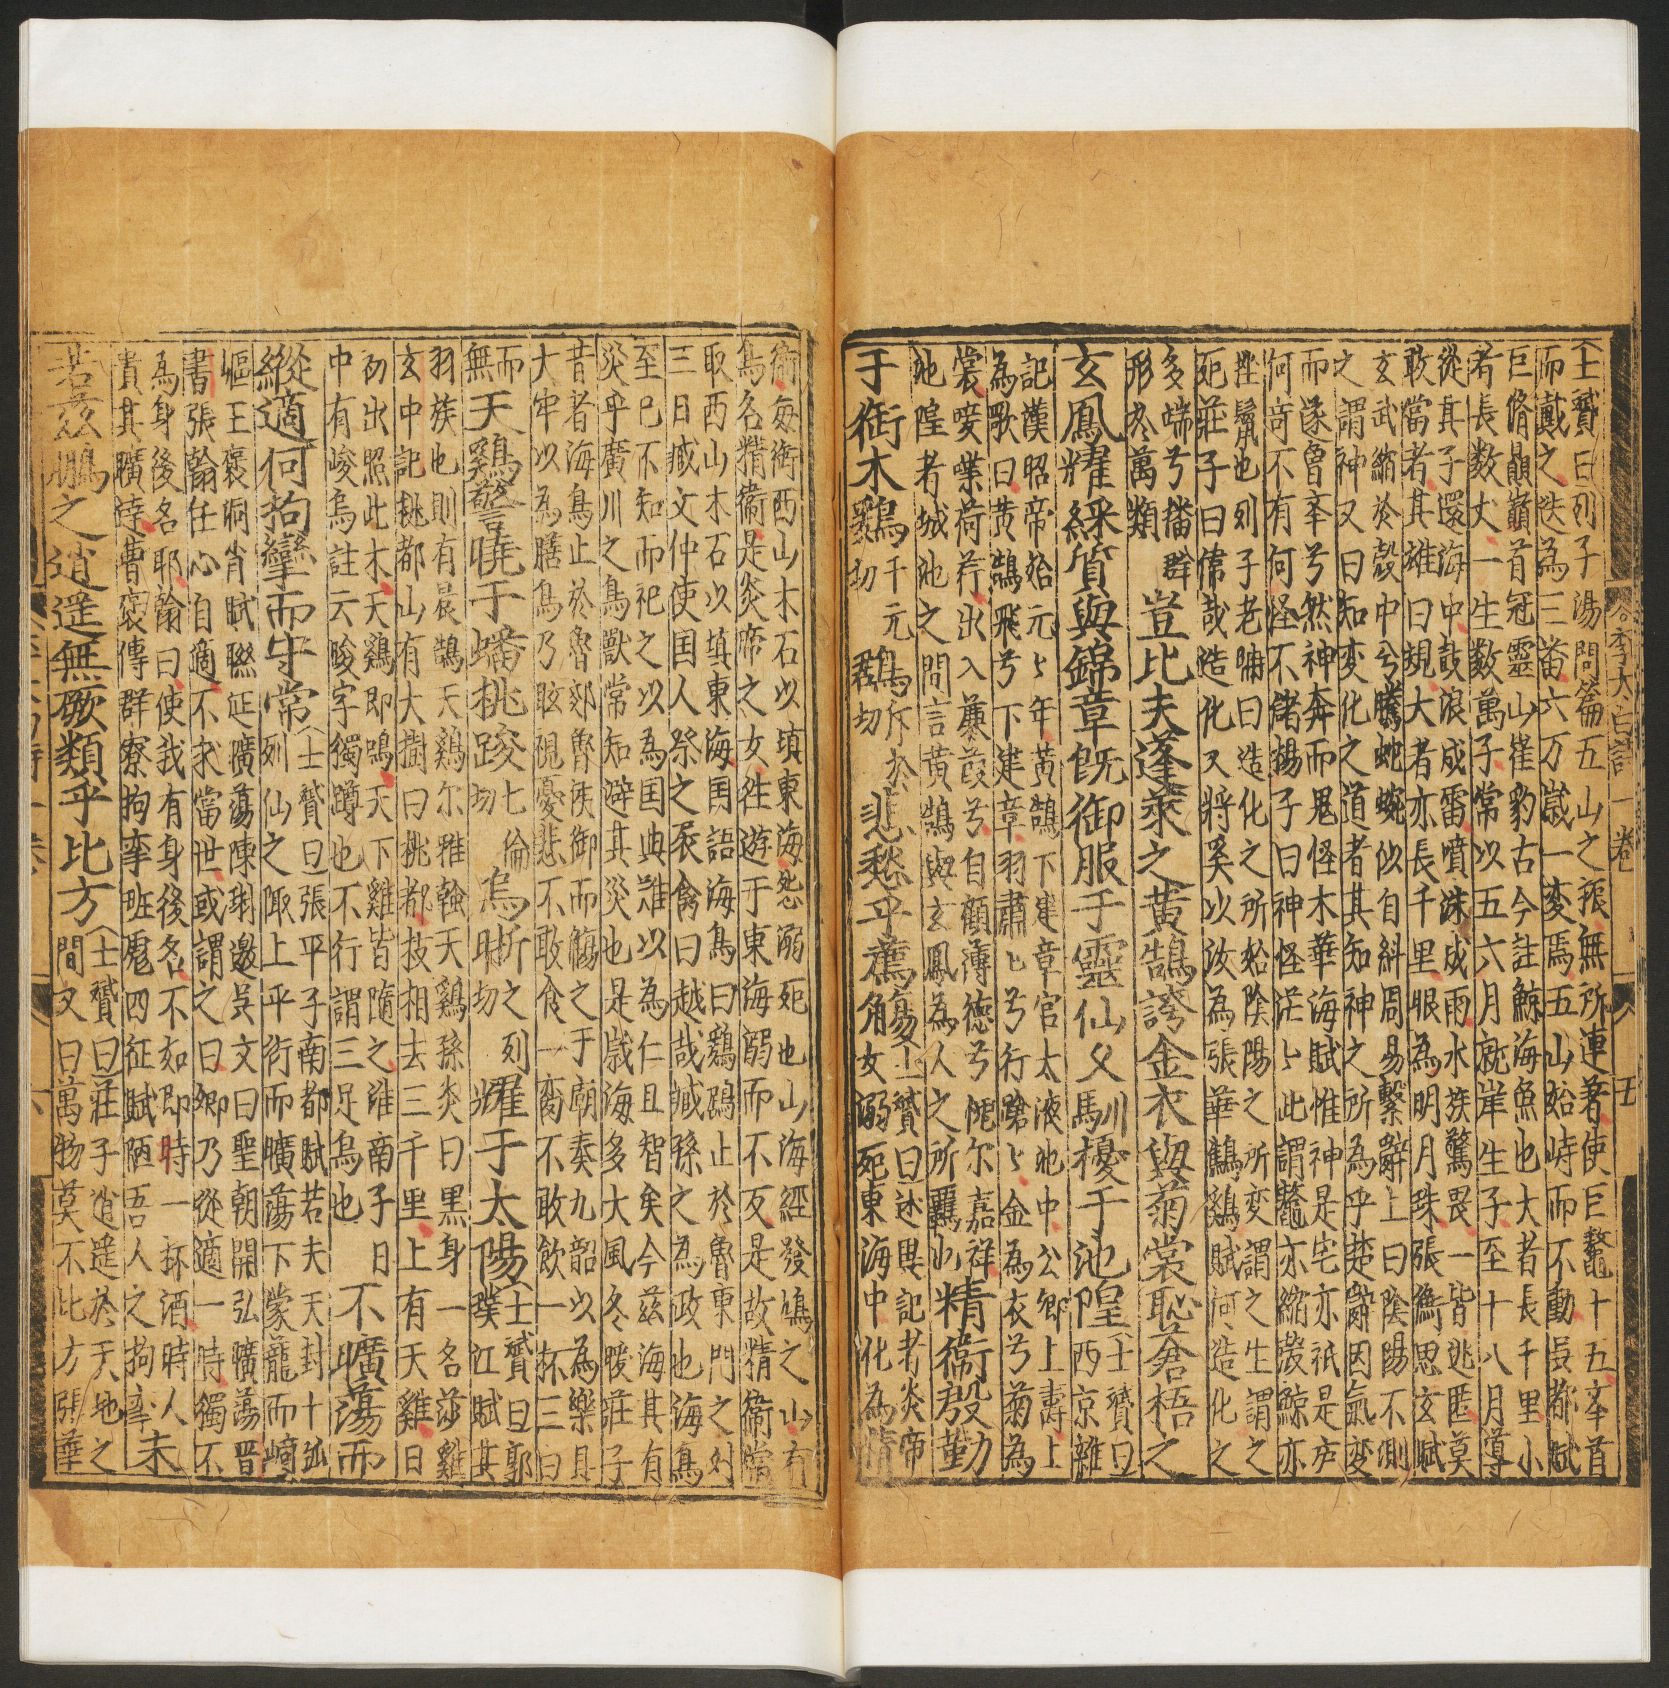 分李太白詩一卷
五
士贇曰列子湯問篇五山之根無所連著使巨鰲十五举首
而戴之迭為三畨六万歲一变焉五山始峙而不動吳都賦
巨脩贔屭首冠靈山崔豹古今註鯨海魚也大者長千里小
者長数丈一生数萬子常以五六月就岸生子至十八月導
從其子還海中鼓浪成雷噴沫成雨水族驚畏一皆逃匿莫
敢當者其雄曰䲔大者亦長千里眼為明月珠張衡思玄賦
玄武縮於殼中兮騰蛇蜿似自糾周易繫辭上曰陰陽不測
之謂神又曰知变化之道者其知神之所為乎楚辭因氣变
而遂曾举兮然神奔而鬼怪木華海賦惟神是宅亦祇是庐
何奇不有何怪不儲揚子曰神怪茫〻此謂鰲亦縮殼鯨亦
挫鬣也列子老聃曰造化之所始陰陽之所変謂之生謂之
死莊子曰偉哉造化又將奚以汝為張華鷦鷯賦何造化之
多端兮播群
形於萬類
豈比夫蓬萊之黃鵠誇金衣與菊裳恥蒼梧之
玄鳳耀綵質與錦章既御服于靈仙父馴擾于池隍
士贇曰
西京雜
記漢昭帝始元〻年黃鵠下建章宫太液池中公卿上壽上
為歌曰黃鵠飛兮下建章羽肅〻兮行蹌〻金為衣兮菊為
裳唼喋荷荇出入蒹葭兮自顧薄德兮愧尔嘉祥
池隍者城池之間言黃鵠與玄鳳為人之所羈也
精衛殷勤
于銜木鶢千元切鶋斤於切悲愁乎薦觴
士贇曰述異記者炎帝
女溺死東海中化為精
衛每銜西山木石以填東海怨溺死也山海經發鳩之山有
鳥名精衛是炎帝之女往遊于東海溺而不反是故精衛常
取西山木石以填東海国語海鳥曰鶢鶋止於魯東門之外
三日臧文仲使国人祭之展禽曰越哉臧孫之為政也海鳥
至已不知而祀之以為国典难以為仁且智矣今兹海其有
災乎廣川之鳥獸常知避其災也是歲海多大風冬暖莊子
昔者海鳥止於魯郊魯侯御而觴之于廟奏九韶以為樂具
大牢以為膳鳥乃眩視憂悲不敢食一臠不敢飲一杯三日
而
無
天鷄警曉于蟠桃踆七倫切烏晰之列切耀于太陽
士贇曰郭
璞江賦其
羽族也則有晨鵠天鷄尔雅翰天鷄孫炎曰黑身一名莎雞
玄中記桃都山有大樹曰桃都枝相去三千里上有天雞日
初出照此木天鷄即鳴天下雞皆隨之淮南子曰
中有峻烏註云晙字獨蹲也不行謂三足烏也
不曠蕩而
縱適何拘攣而守常
士贇曰張平子南都賦若夫天封十狐
列仙之陬上平衍而曠蕩下蒙籠而崎
嶇王褒洞肖賦聯延曠蕩陳琳邀吴文曰聖朝開弘曠蕩晋
書張翰任心自適不求當世或謂之曰卿乃從適一時獨不
為身後名耶翰曰使我有身後名不如即時一抔酒時人
貴其曠達曹褒傳群寮拘攣班彪四征賦陋吾人之拘攣
未
若兹鵬之逍遥無厥類乎比方
士贇曰莊子逍遥於天地之
間又曰萬物莫不比方張華